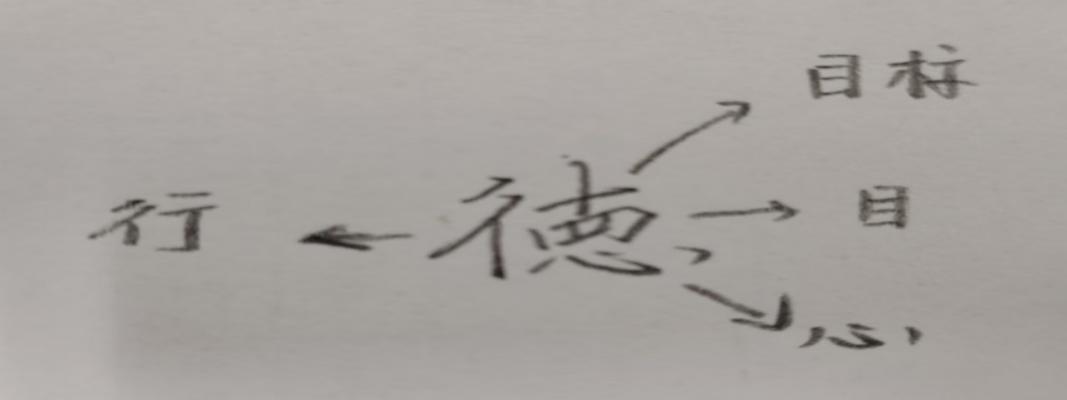 目标
行 ← 德 → 目
心